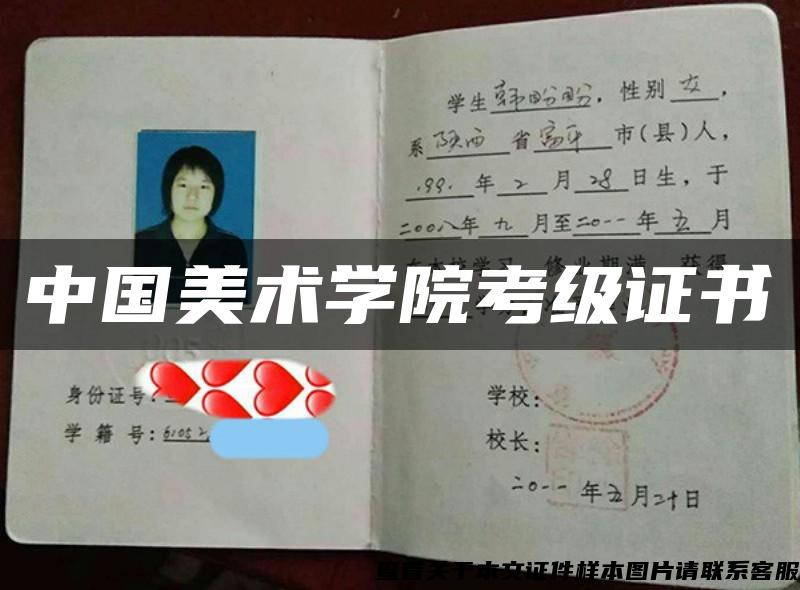 学生韩盼盼，性别女，
系陕西省富平市(县)人，
1991年2月28日生，于
二00八年九月至二0一一年五月
在本校学习，修业期满，获得
中国美术学院考级证书
身份证号：
学籍号：61052
学校：
校长：
二0一一年五月二十日
查看关于本文证件样本图片请联系客服